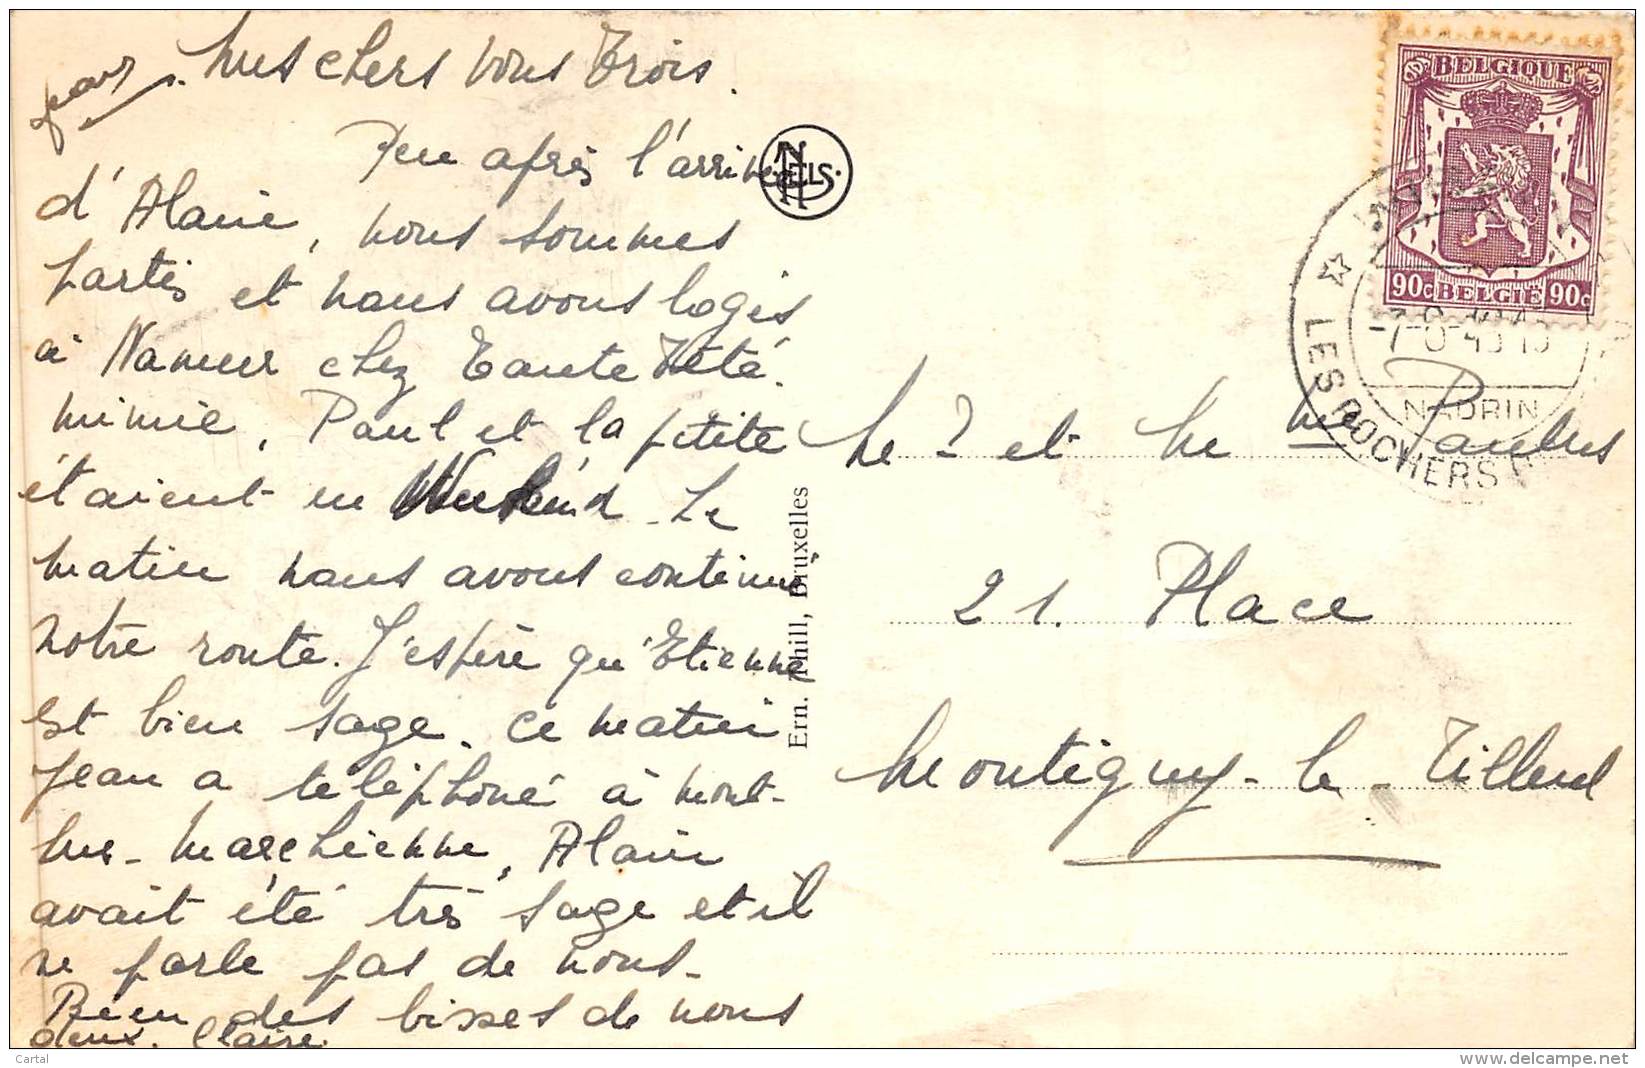 Mes chers vous trois.
Peu après l'arrivée
d'Alain, nous sommes
partis et nous avons logés
à Namur chez Tante Tété.
Mimie, Paul et la petite
étaient en Week-end. Le
matin nous avons continué
notre route. J'espère qu'Etienne
est bien sage. Ce matin
Jean a téléphoné à Mont-
sur-Marchienne, Alain
avait été très sage et il
ne parle pas de nous.
Bien des bisses de nous
deux. Claire
NELS
Ern. Thill, Bruxelles
BELGIQUE
90c BELGIË 90c
NADRIN
LES ROCHERS
et Paulus
21. Place
Montigny-le-Tilleul
Cartal
www.delcampe.net